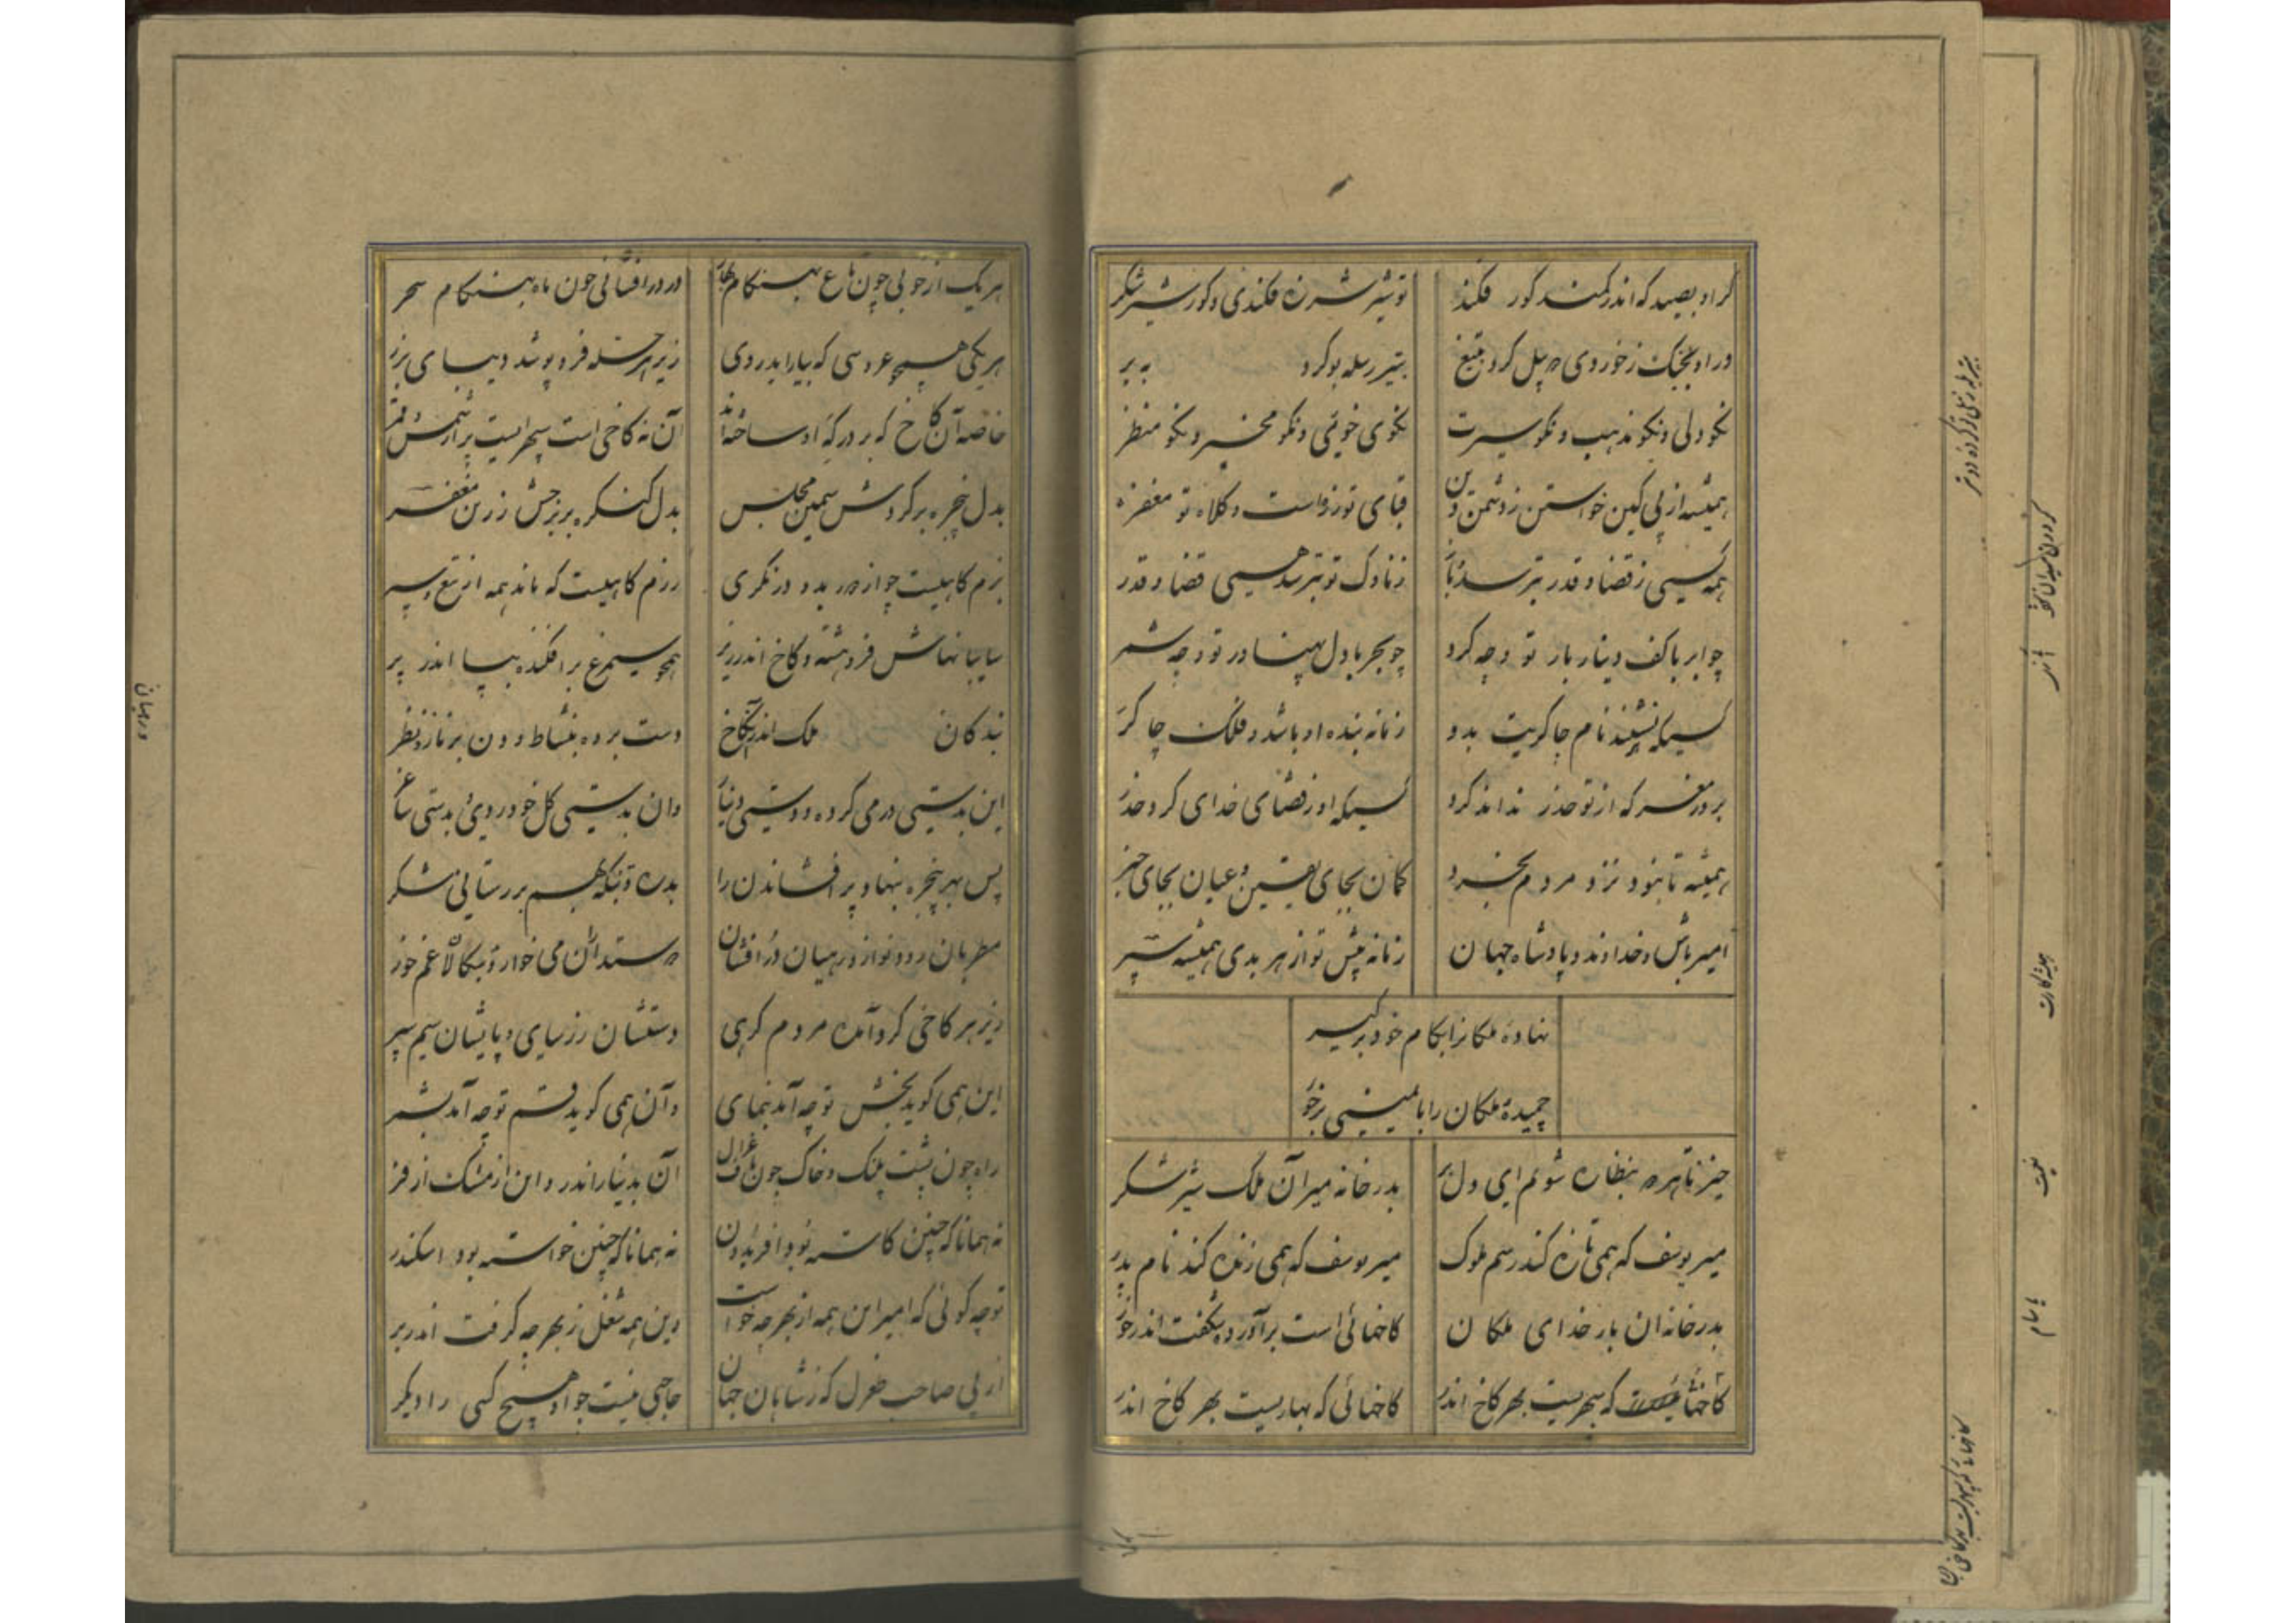 گر او بصید که اندر کمند گور فکند
تو شیر شرزه فکندی و گور شیر شکر
ور او بجنک زخوردی ره پیل کرد بتیغ
بتیر رمله بوکرد به بر
نکو دلی و نکو مذهب و نکو سیرت
نکوی خوئی و نکو مخبر و نکو منظر
همیشه از پی کین خواستن ز دشمن دین
قبای تو زره است و کلاه تو مغفر
همه کسی ز قضا و قدر بترسد باز
ز ناوک تو بترسد همیی قضا و قدر
چو ابر با کف دینار بار تو چه کرد
چو بحر با دل پهناور تو چه شمر
کسیکه نشنید نام چاکریت بدو
زمانه بنده او باشد و فلک چاکر
بد و مفر که از تو حذر نداند کرد
کسیکه او ز قضای خدای کرد حذر
همیشه تا نبود نزد مردم بخرد
کمان بجای یقین و عیان بجای خبر
امیر باش و خداوند و پادشاه جهان
زمانه پیش تو از هر بدی همیشه سپر
نهادهٔ ملکانرا بکام خود برگیر
چمیدهٔ ملکان را بایمینی برخور
خیز تا هر دو بنظاره شویم ای دلبر
بدر خانه میر آن ملک شیر شکر
میر یوسف که همی تازه کند رسم ملوک
میر یوسف که همی زنده کند نام پدر
بدر خانه ان بار خدای ملکان
کاخهائی است برآورده بگفت اندر خور
کاخهائی که سپهریست بهر کاخ اندر
کاخهائی که بهاریست بهر کاخ اندر
هر یک از خوبی چون باغ بهنکام بهار
در درافشانی چون ماه بهنکام سحر
هر یکی همچو عروسی که بیاراید روی
زیر هر حله فرو پوشد دیبای بزر
خاصه آن کاخ که بر درکه او ساخته اند
آن نه کاخی است سپهریست پر از شمس و قمر
بدل پنجره بر گردش سیمین مجلس
بدل کنکره بر برجش زرین مغفر
بزم کاهیست چو از دور بدو در نکری
رزم کاهیست که ماند همه از تیغ و سپر
سایبانهاش فرو هشته و کاخ اندر زیر
همچو سیمرغ بر افکنده بپا اندر پر
بندکان ملک اندر آنکاخ
دست برده بنشاط و دون بر ناز و نظر
این بدستی درمی کرده و دستی دینار
وان بدستی کل خود روی بدستی ساغر
پس بهر پنجره بنهاد بر افشاندن را
بدره و تنکه بهم بر رستائی شکر
مطربان رود نواز و رهیان در افشان
دوستداران می خوار و بدسکالان غم خور
زیر هر کاخی گرد آمده مردم گرهی
دستشان زرسای و پایشان سیم سپر
این همی گوید بخش تو چه آمد بنمای
وآن همی کوید قسم تو چه آمد بشمر
راه چون پشت پلنک و خاک چون ناف غزال
آن بدینار اندر و این از مشک ازفر
نه همانا که چنین کاسته بود افریدون
نه همانا که چنین خواسته بود اسکندر
تو چه گوئی که امیر این همه از بهر چه خواست
وین همه شغل ز بهر چه گرفت اندر بر
از پی صاحب طغرل که ز شاهان جهان
حاجبی نیست چو او هیچ کسی را دیگر